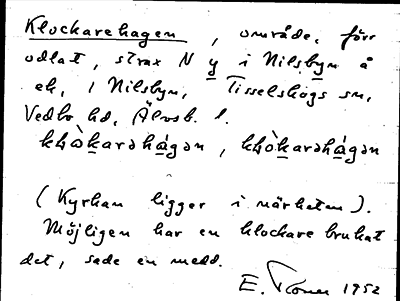 Klockarehagen, område, förr
odlat, strax N y i Nilsbyn å
ek, i Nilsbyn, Tisselskogs sn,
Vedbo hd, Älvsb. l.
khòkarəhágən, khòkarəhágən
(Kyrkan ligger i närheten).
Möjligen har en klockare brukat
det, sade en medd.
E. 1952